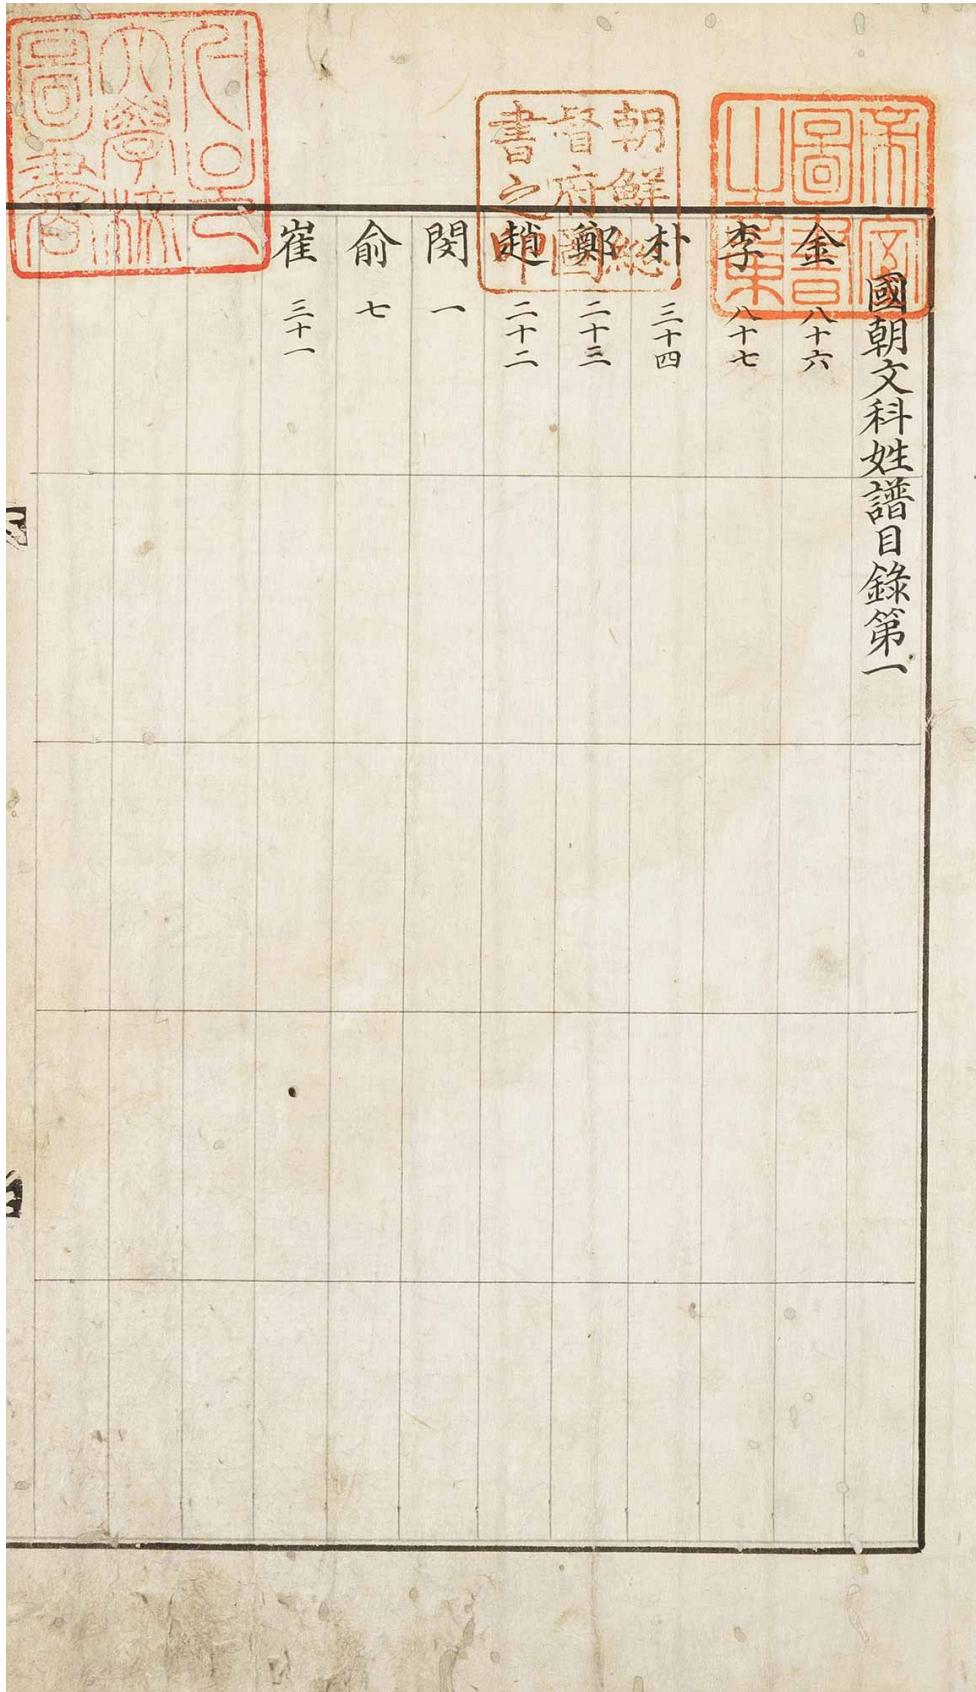 國朝文科姓譜目錄第一
金 八十六
李 八十七
朴 三十四
鄭 二十三
趙 二十二
閔 一
俞 七
崔 三十一
帝室
圖書
之章
朝鮮總
督府圖
書之印
서울
大學校
圖書